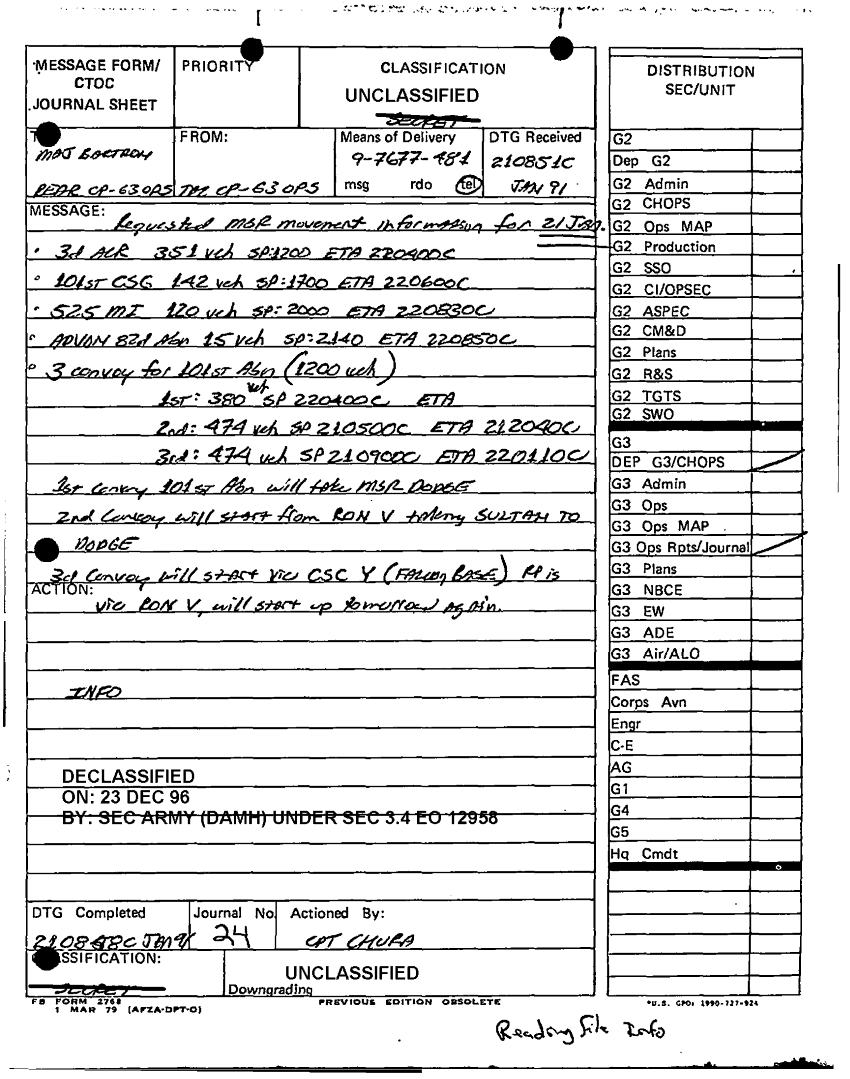 MESSAGE FORM/
CTOC
JOURNAL SHEET
PRIORITY
CLASSIFICATION
UNCLASSIFIED
SECRET
FROM:
Means of Delivery
DTG Received
MAJ
9-7677-481
210851C
REAR CP-G3 OPS
TAC CP-G3 OPS
msg rdo tel
JAN 91
MESSAGE:
Requested MSR movement information for 21 Jan.
• 3d ACR 351 veh SP:1200 ETA 220400C
• 101ST CSG 142 veh SP:1700 ETA 220600C
• 525 MI 120 veh SP:2000 ETA 220830C
• ADVAN 82d Abn 15 veh SP:2140 ETA 220850C
• 3 convoy for 101st Abn (1200 veh)
1st: 380 veh SP 220400C ETA
2nd: 474 veh SP 210500C ETA 212040C
3rd: 474 veh SP 210900C ETA 220110C
1st Convoy 101st Abn will take MSR DODGE
2nd Convoy will start from RON V taking SULTAN TO
DODGE
3d Convoy will start vic CSC Y (FALCON BASE) RP is
ACTION:
vic RON V, will start up tomorrow again.
INFO
DECLASSIFIED
ON: 23 DEC 96
BY: SEC ARMY (DAMH) UNDER SEC 3.4 EO 12958
DTG Completed
Journal No.
Actioned By:
JAN 91
24
CPT CHURA
SSIFICATION:
SECRET
UNCLASSIFIED
Downgrading
FB FORM 2768
1 MAR 79 (AFZA-DPT-O)
PREVIOUS EDITION OBSOLETE
DISTRIBUTION
SEC/UNIT
G2
Dep G2
G2 Admin
G2 CHOPS
G2 Ops MAP
G2 Production
G2 SSO
G2 CI/OPSEC
G2 ASPEC
G2 CM&D
G2 Plans
G2 R&S
G2 TGTS
G2 SWO
G3
DEP G3/CHOPS
G3 Admin
G3 Ops
G3 Ops MAP
G3 Ops Rpts/Journal
G3 Plans
G3 NBCE
G3 EW
G3 ADE
G3 Air/ALO
FAS
Corps Avn
Engr
C-E
AG
G1
G4
G5
Hq Cmdt
*U.S. GPO: 1990-727-924
Reading File Info